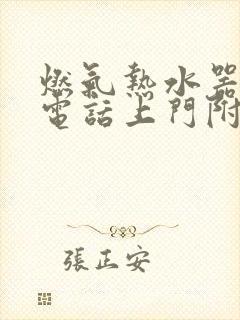 燃氣熱水器
電話上門附
張正安